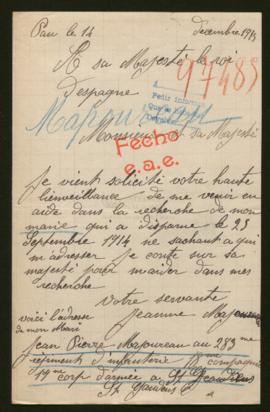 Pau le 14 décembre 1914
A sa Majesté le roi
97485
d'espagne
A
Pedir inform
Mapoureau
Monsieur sa Majesté
Fecho
e.a.e.
Je vient solicité votre haute
bienveillance de me venir en
aide dans la recherche de mon
marie qui a disparue le 23
Septembre 1914 ne sachant a qui
m adresser Je conte sur sa
majesté pour m'aider dans mes
recherche
Votre servante
Jeanne Mapoureau
voici l'adresse
de mon Mari
Jean Pierre Mapoureau au 283 me
régiment d'infanterie 18 me compagnie
17 me corp d'armée a
St Gaudens